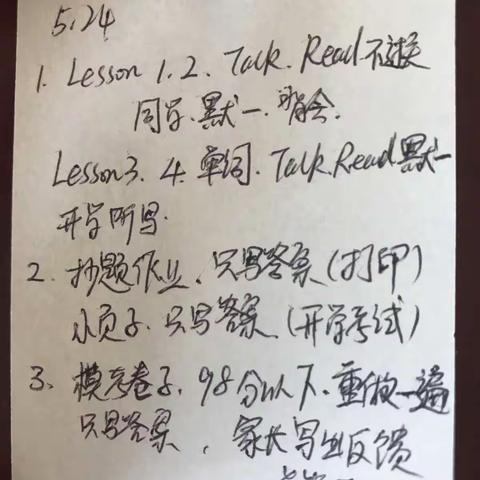 5.24
1. Lesson 1.2. Talk. Read 不过关
同学.默一.背会.
Lesson3. 4. 单词. Talk. Read 默一
开学听写.
2. 抄题作业.只写答案(打印)
小页子.只写答案.(开学考试)
3. 模考卷子.98分以下.重做一遍
只写答案,家长写出反馈